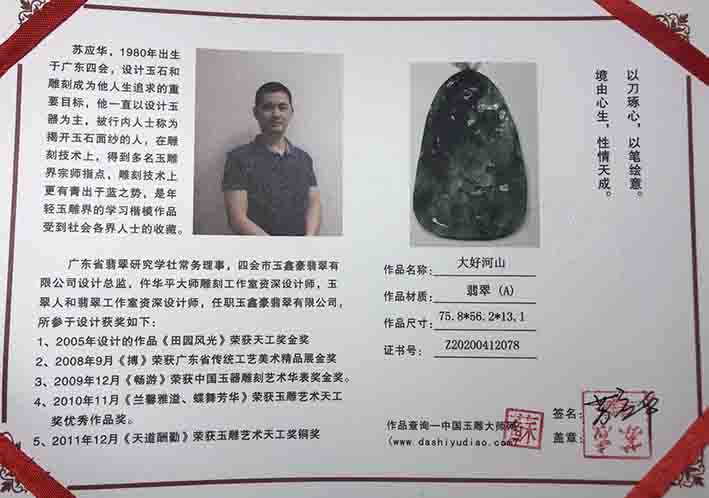 苏应华，1980年出生
于广东四会，设计玉石和
雕刻成为他人生追求的重
要目标，他一直以设计玉
器为主，被行内人士称为
揭开玉石面纱的人，在雕
刻技术上，得到多名玉雕
界宗师指点，雕刻技术上
更有青出于蓝之势，是年
轻玉雕界的学习楷模作品
受到社会各界人士的收藏。
广东省翡翠研究学社常务理事，四会市玉鑫豪翡翠有
限公司设计总监，仵华平大师雕刻工作室资深设计师，玉
翠人和翡翠工作室资深设计师，任职玉鑫豪翡翠有限公司，
所参于设计获奖如下：
1、2005年设计的作品《田园风光》荣获天工奖金奖
2、2008年9月《搏》荣获广东省传统工艺美术精品展金奖
3、2009年12月《畅游》荣获中国玉器雕刻艺术华表奖金奖。
4、2010年11月《兰馨雅溢、蝶舞芳华》荣获玉雕艺术天工
奖优秀作品奖。
5、2011年12月《天道酬勤》荣获玉雕艺术天工奖铜奖
以刀琢心，以笔绘意。
境由心生，性情天成。
作品名称：大好河山
作品材质：翡翠（A）
作品尺寸：75.8*56.2*13.1
证书号：Z20200412078
作品查询—中国玉雕大师网
(www.dashiyudiao.com)
蘇
签名：
盖章：